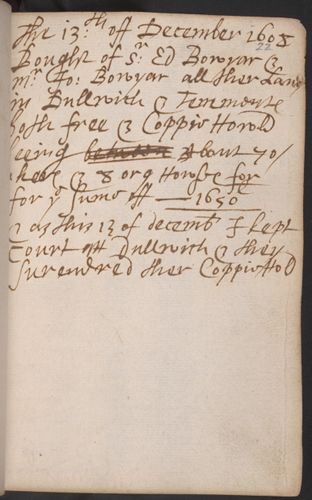 the 13.th off December 1608
22
Bought of Sr Ed Bowyar &
mr Jo: Bowyar all ther Land
in Dullwich &
both free & Coppie Howld
beeing about 70/
& 8 or 9 Howses for
for ye Sume off — 1650
& as this 13 of decemb I kept
Court att Dullwich & ther
Surendred ther CoppieHold